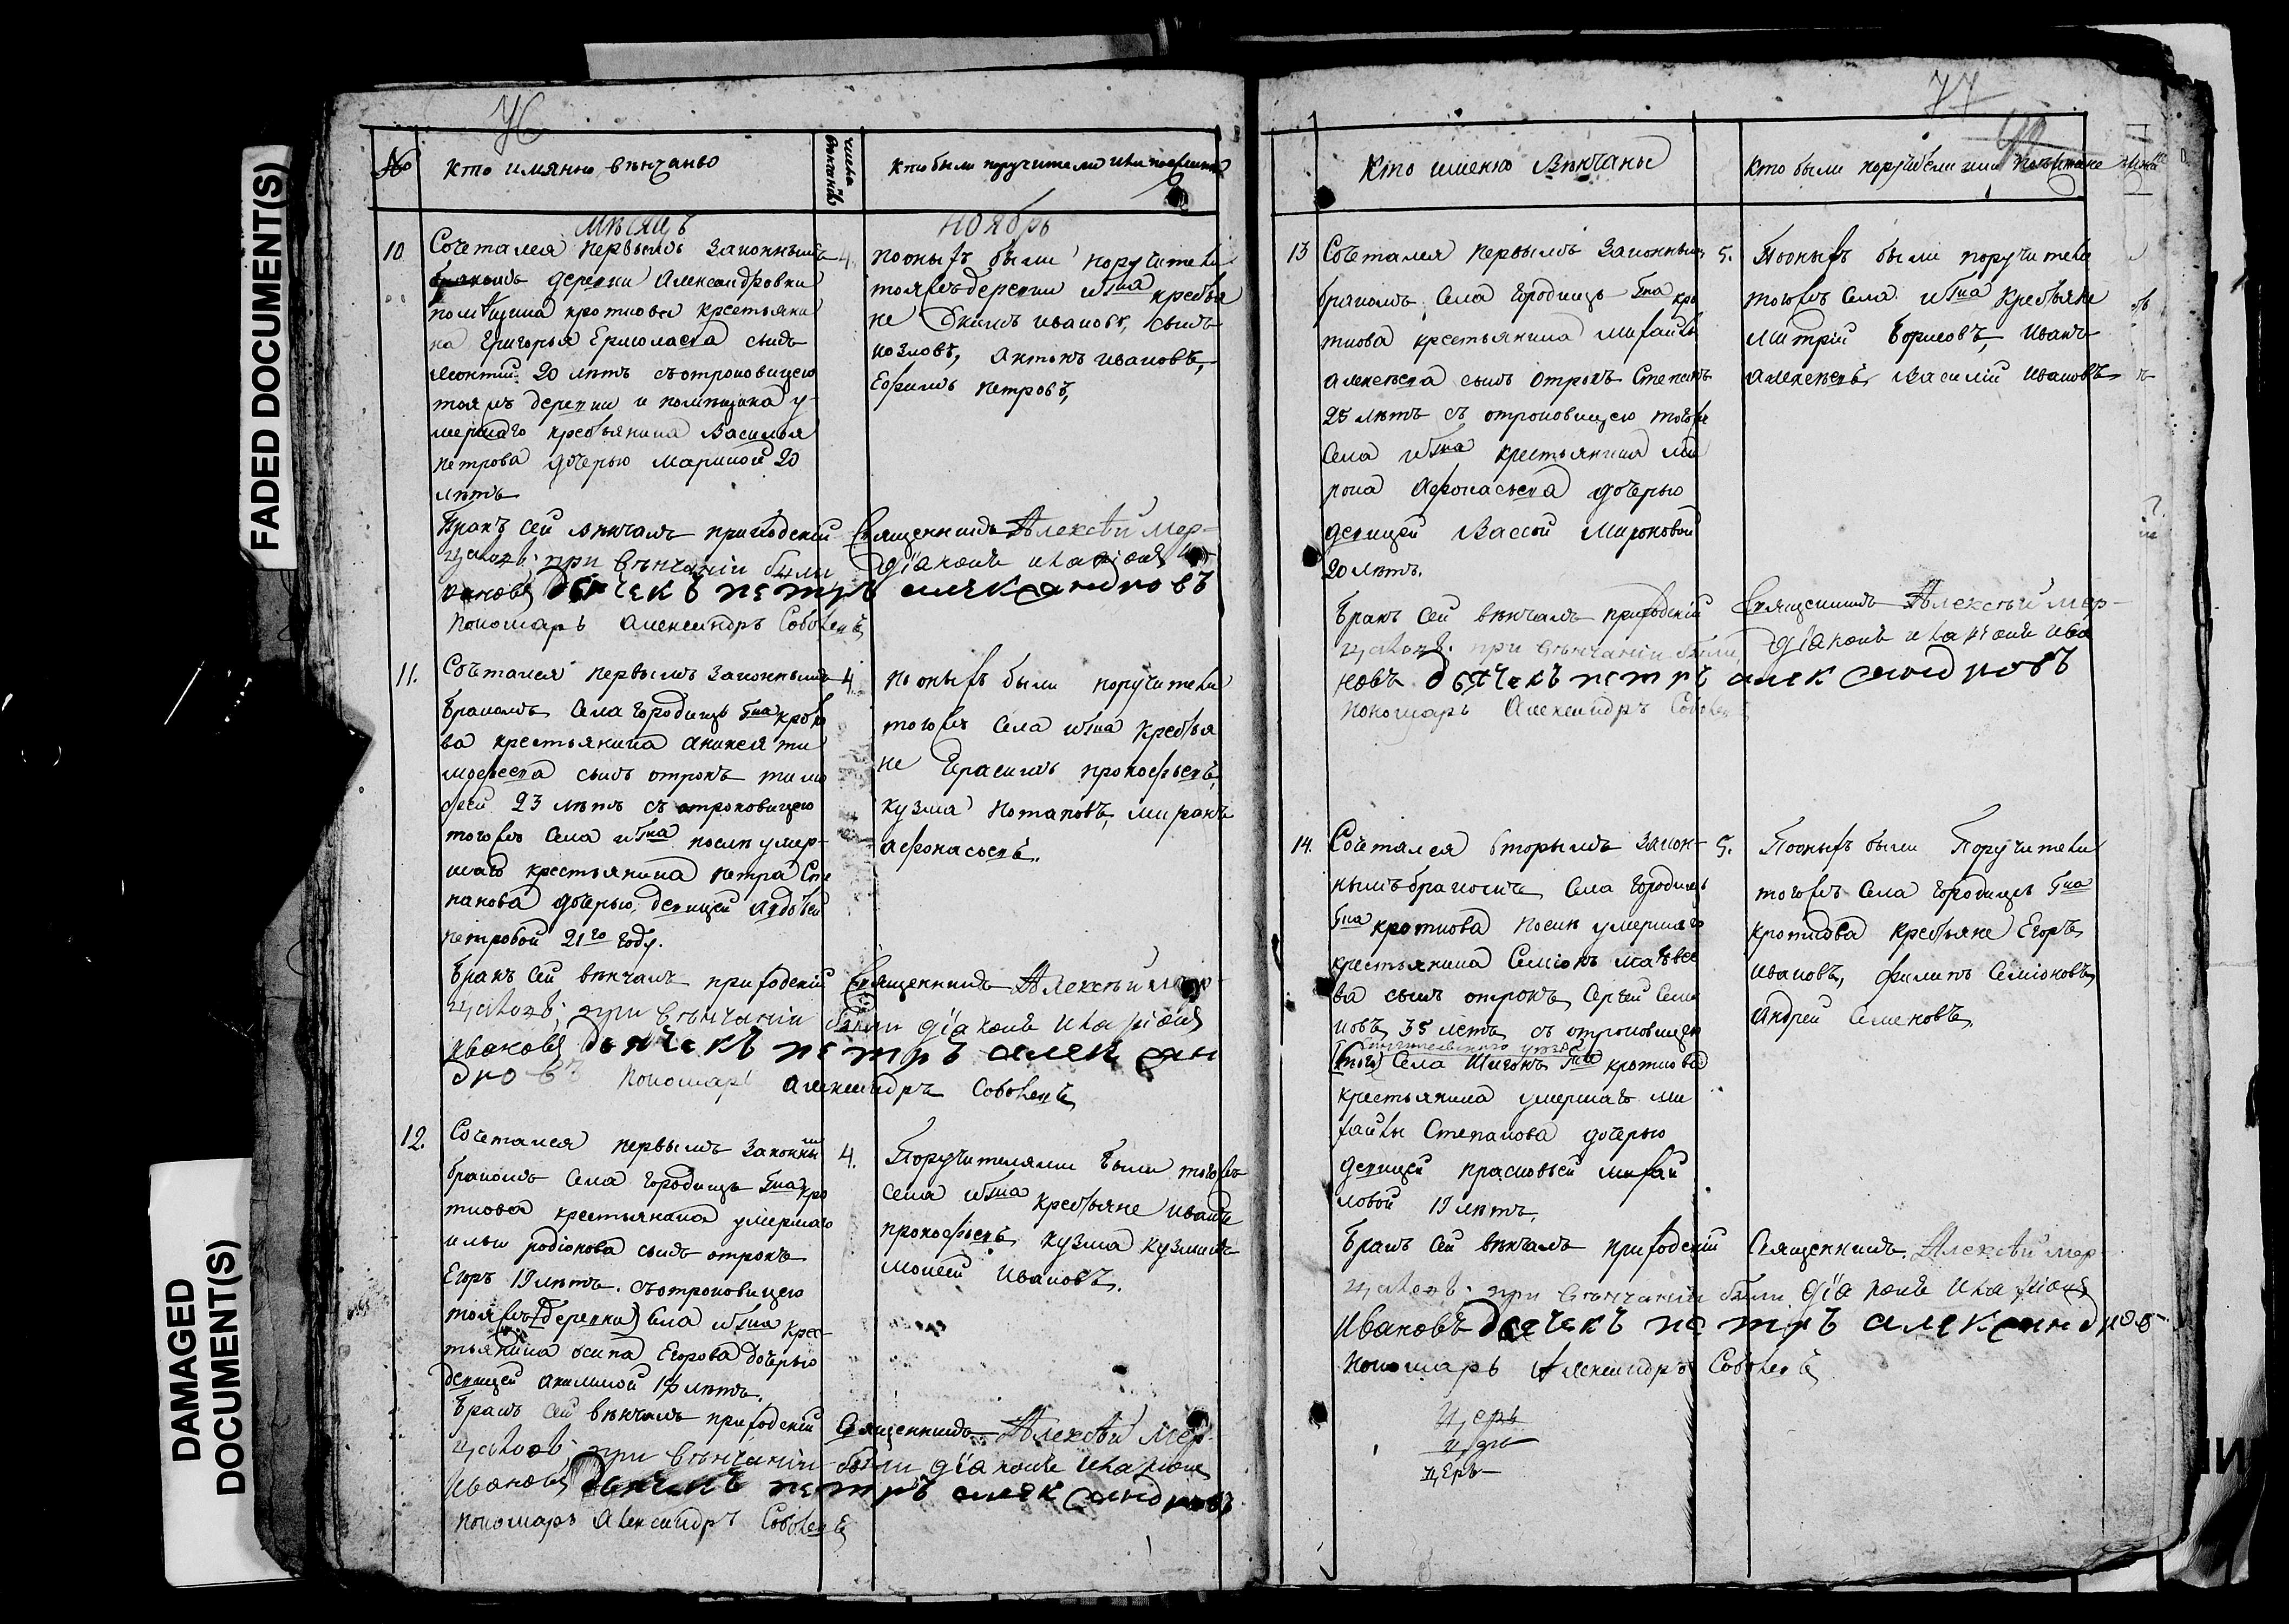 FADED DOCUMENT(S)
DAMAGED
DOCUMENT(S)
76
№
кто имянно вѣнчаны
число
вѣнчанія
кто были поручители или поѣзжане
мѣсяцъ
ноябрь
10
Сочетался первымъ законнымъ
бракомъ деревни Александровки
помѣщика кроткова крестьяни
на Григорья Ермолаева сынъ
леонтій 20 лѣтъ съ отроковицею
тояжъ деревни и помѣщика у-
мершаго крестьянина Василья
петрова дочерью мариною 20
лѣтъ
4.
поонымъ были поручители
тояжъ деревни и Гна крестья
не Екимъ ивановъ, сынъ
козловъ, антонъ ивановъ,
Ефимъ петровъ,
Бракъ сей вѣнчалъ приходскій Священникъ Алексѣй Мер-
цаловъ: при вѣнчаніи были діаконъ иларіонъ
ивановъ дьячекъ петръ александровъ
пономарь александръ Соболевъ
11.
Сочетался первымъ законнымъ
бракомъ Села городищъ Гна кротко
ва крестьянина аникея ти
мофеева сынъ отрокъ тимо
фей 23 лѣтъ съ отроковицею
тогожъ Села и Гна послѣ умер-
шаго крестьянина петра Сте
панова дочерью, девицей авдотьей
петровой 21го году.
4.
поонымъ были поручители
тогожъ Села и Гна крестья
не Герасимъ прокофьевъ,
кузма потаповъ, миронъ
афонасьевъ.
Бракъ сей вѣнчалъ приходскій Священникъ Алексѣй мер-
цаловъ; при вѣнчаніи были діаконъ иларіонъ
ивановъ дьячекъ петръ алексан
дровъ пономарь александръ Соболевъ
12.
Сочетался первымъ законны
мъ
бракомъ Села городищъ Гна кро
ткова крестьянина умершаго
ильи родіонова сынъ отрокъ
Егоръ 19 лѣтъ. съ отроковицею
тояжъ (деревни) Села и Гна крес-
тьянина осипа Егорова дочерью
девицей акилиной лѣтъ.
4.
Поручителями были тогожъ
села и Гна крестьяне иванъ
прокофьевъ кузма кузминъ
моисей ивановъ.
Бракъ сей вѣнчалъ приходскій Священникъ Алексѣй Мер-
цаловъ; при вѣнчаніи были діаконъ иларіонъ
ивановъ дьячекъ петръ александровъ
пономарь александръ Соболевъ
77
Кто именно Вѣнчаны
Кто были поручители или поѣзжане
13
Сочетался первымъ законнымъ
бракомъ Села городищъ Гна кро
ткова крестьянина михайлы
алексѣева сынъ отрокъ Степанъ
25 лѣтъ съ отроковицею тогожъ
Села и Гна крестьянина ми
рона афонасьева дочерью
девицей Вассой мироновой
20 лѣтъ.
5.
Поонымъ были поручители
тогожъ Села и Гна Крестьяне
митрій борисовъ, иванъ
алексѣевъ, василій ивановъ
Бракъ сей вѣнчалъ приходскій Священникъ Алексѣй мер-
цаловъ. при вѣнчаніи были, діаконъ иларіонъ ива
новъ дьячекъ петръ александровъ
пономарь Александръ Соболевъ
14.
Сочетался вторымъ закон-
нымъ бракомъ Села городищъ
Гна кроткова послѣ умершаго
крестьянина Семіонъ матвее
ва сынъ отрокъ Сергей Семио
новъ 35 летъ съ отроковицею
(тогожъ) Села Шигонъ Гна кроткова
крестьянина умершаго ми
хайлы Степанова дочерью
девицей прасковьей михай
ловой 19 лѣтъ.
5.
Поонымъ были Поручители
тогожъ Села городищъ Гна
кроткова крестьяне Егоръ
ивановъ, филипъ Семіоновъ,
андрей Семеновъ,
Бракъ сей вѣнчалъ приходскій Священникъ. Алексѣй мер-
цаловъ. при вѣнчаніи были діаконъ иларіонъ
ивановъ дьячекъ петръ александров
пономарь Александръ Соболевъ